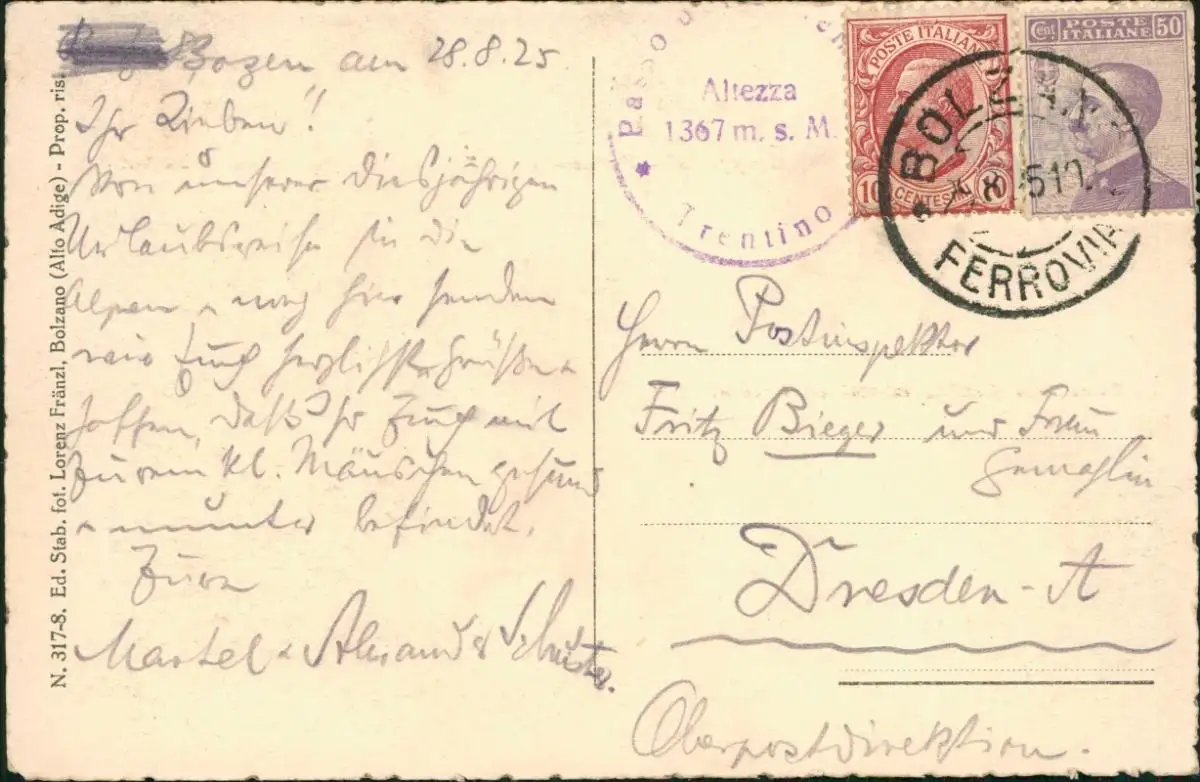 Bozen am 28.8.25
Ihr Lieben!
Von unserer diesjährigen
Urlaubsreise in die
Alpen u. von hier senden
wir Euch herzlichste Grüße u.
hoffen, daß Ihr Euch mit
Eurem kl. Mäuschen gesund
u. munter befindet.
Eure
Martel u.
N. 317-8. Ed. Stab. fot. Lorenz Fränzl, Bolzano (Alto Adige) - Prop. ris.
Passo
Altezza
1367 m. s. M.
Trentino
POSTE ITALIANE
10
CENTESIMI
Cent POSTE 50
ITALIANE
BOLZANO
FERROVIA
Herrn Postinspektor
Fritz Bieger und Frau
Gemahlin
Dresden-A
Oberpostdirektion.